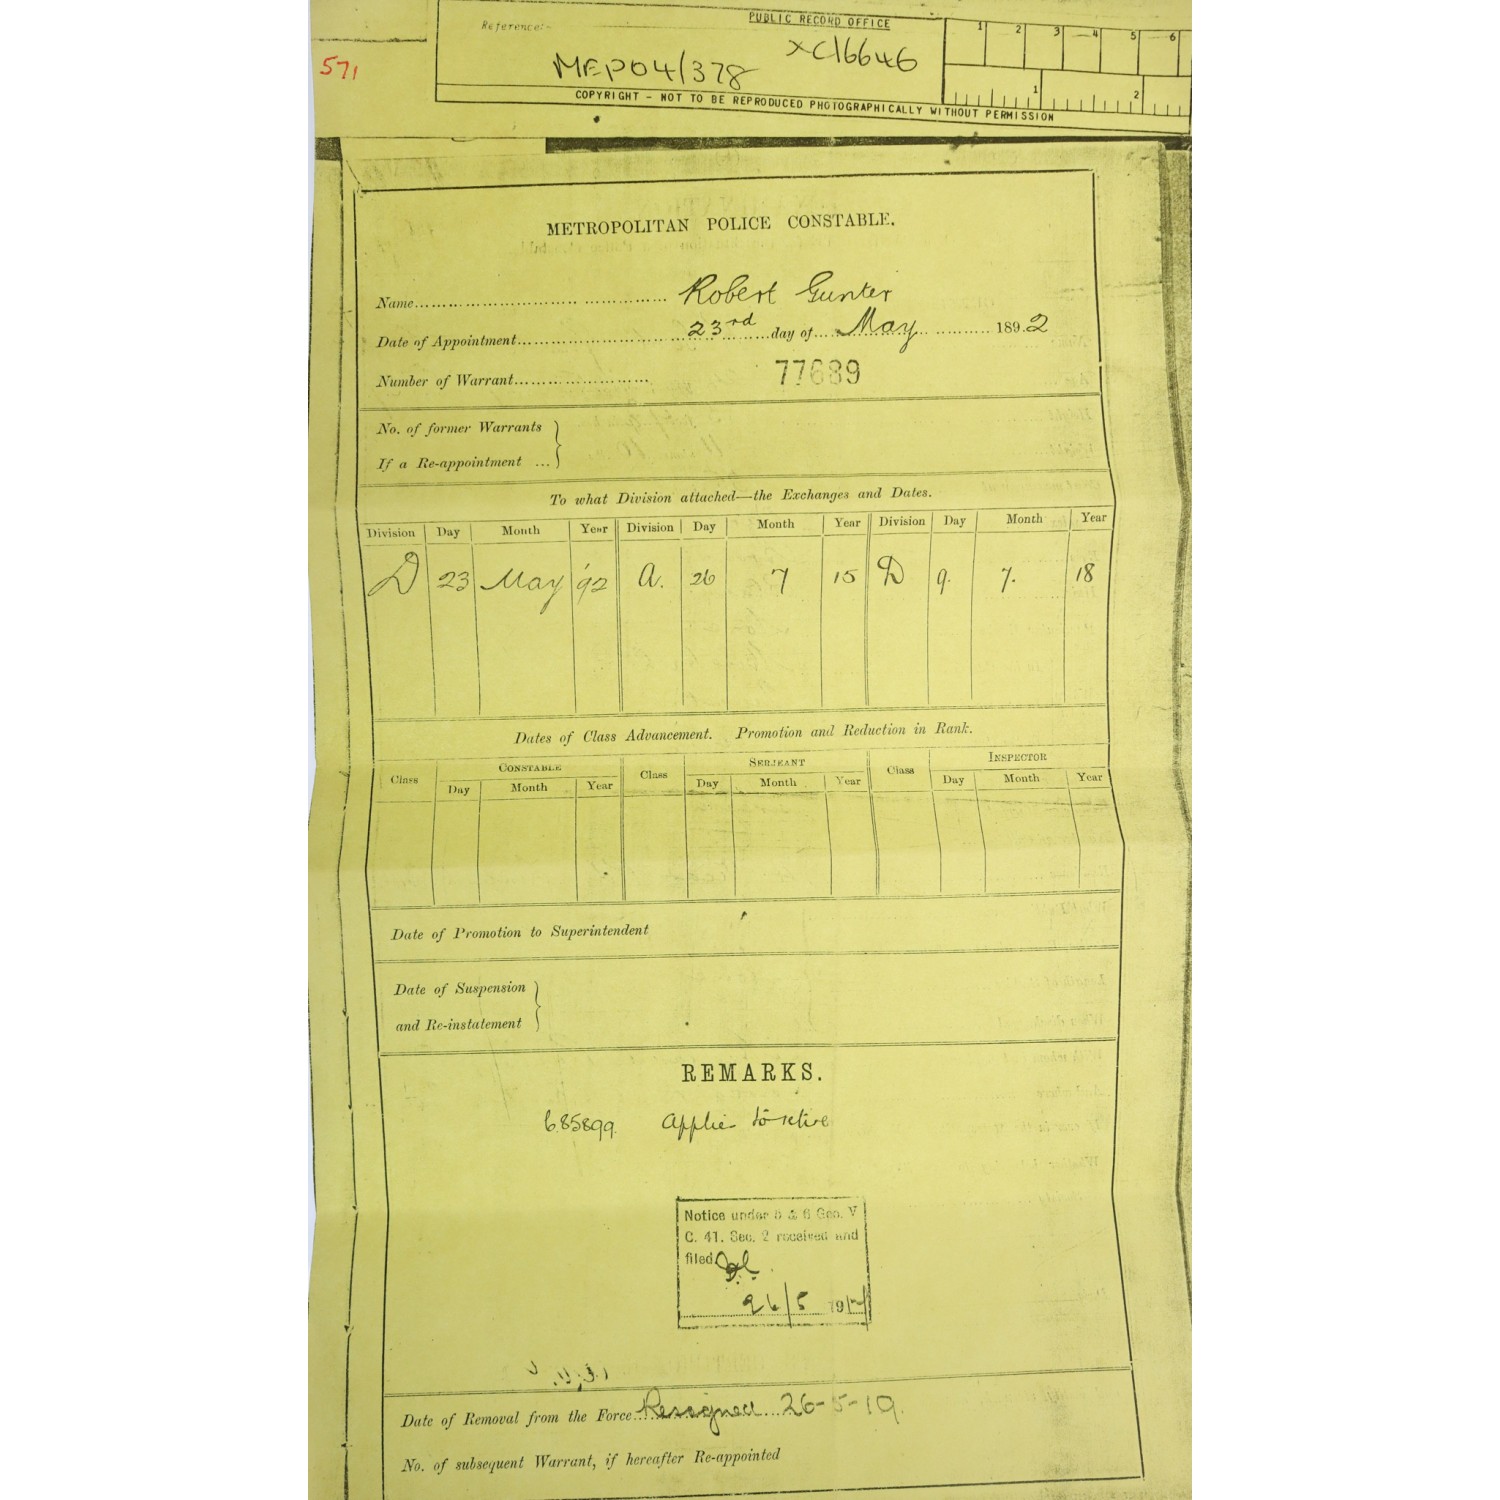 571
Reference:-
PUBLIC RECORD OFFICE
MEPO4/378
XC16646
1 2 3 4 5 6
1 2
COPYRIGHT - NOT TO BE REPRODUCED PHOTOGRAPHICALLY WITHOUT PERMISSION
METROPOLITAN POLICE CONSTABLE.
Name Robert Gunter
Date of Appointment 23rd day of May 1892
Number of Warrant 77689
No. of former Warrants
If a Re-appointment ...
To what Division attached—the Exchanges and Dates.
Division Day Month Year Division Day Month Year Division Day Month Year
D 23 May '92 A. 26 7 15 D 9. 7. 18
Dates of Class Advancement. Promotion and Reduction in Rank.
Class CONSTABLE Class SERJEANT Class INSPECTOR
Day Month Year Day Month Year Day Month Year
Date of Promotion to Superintendent
Date of Suspension
and Re-instatement
REMARKS.
685899. Applies to retire
Notice under 5 & 6 Geo. V
C. 41. Sec. 2 received and
filed
26/5 191
Date of Removal from the Force Resigned 26-5-19.
No. of subsequent Warrant, if hereafter Re-appointed